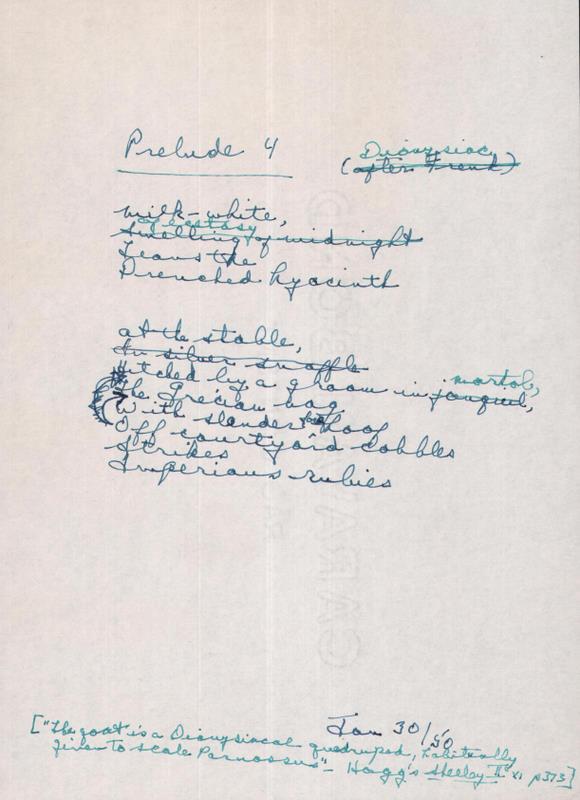 Prelude 4
Dionysiac
(after Freud)
milk-white,
of ecstasy
smelling of midnight
Leans the
Drenched hyacinth
at the stable,
In silver snaffle
Hitched by a groom in jonquil,
marbob,
The Grecian
With slender hoof
Off courtyard cobbles
Strikes
Imperious rubies
Jan 30/50
["The goat is a Dionysiacal quadruped, habitually
given to scale Parnassus" - Hogg's Shelley II xi p373]